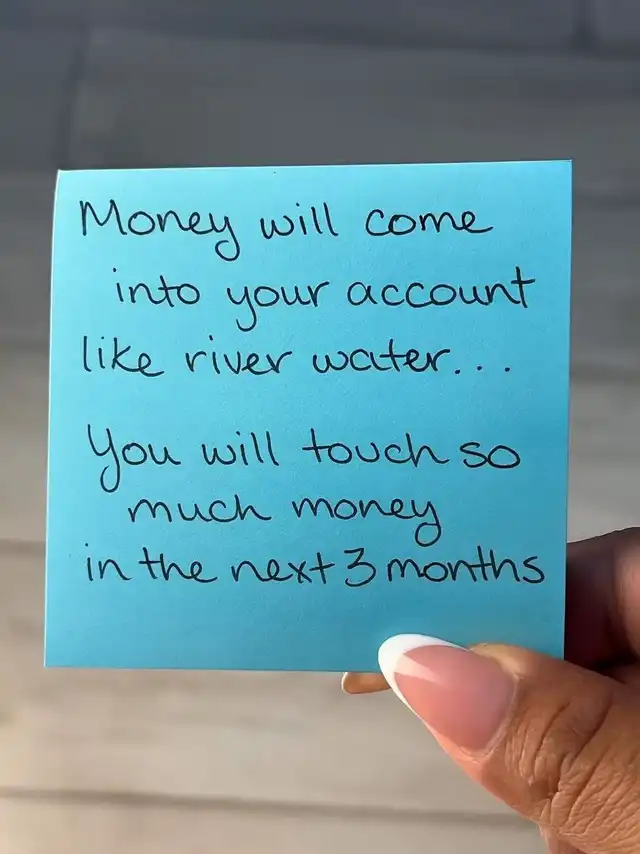 Money will come
into your account
like river water...
You will touch so
much money
in the next 3 months